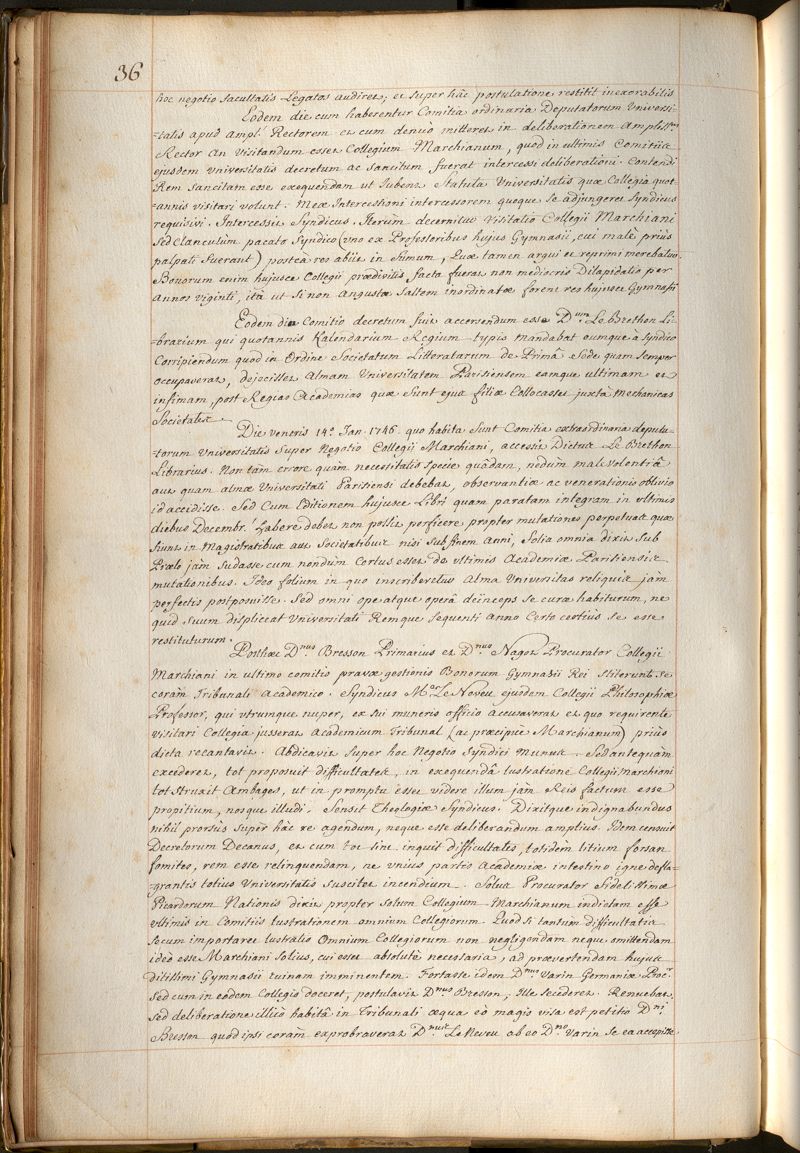 36
hoc negotio facultatis Legatos audiret; et super hâc postulatione restitit inexorabilis
Eodem die cum haberentur Comitia ordinaria Deputatorum Universi-
=tatis apud Ampl. Rectorem et cum denuo mitteret in deliberationem Ampliss.mus
Rector An Visitandum esset Collegium Marchianum, quod in ultimis Comitiis
ejusdem Universitatis decretum ac sancitum fuerat intercessi deliberationi. Contendi
Rem sancitam esse exequendam ut Jubent Statuta Universitatis quæ Collegia quot-
annis visitari volunt. Meæ Intercessioni intercessorem quoque se adjungeret Syndicus
requisivi. Intercessit Syndicus. Iterùm decernitur Visitatio Collegii Marchiani
sed clanculùm pacato Syndico (vno ex Professoribus hujus Gymnasii, cui malè priùs
palpati fuerant) postea res abiit in fumum, Quæ tamen argui et reprimi merebatur.
Bonorum enim hujusce Collegii prædivitis facta fuerat non mediocris Dilapidatio per
Annos viginti, ità ut si non Angustæ saltem inordinatæ forent res hujusce Gymnasii
Eodem die Comitio decretum fuit accersendum esse D.num Le Brethon Li-
=brarium qui quotannis Kalendarium Regium typis mandabat eumque à Syndico
Corripiendum quod in Ordine Societatum Litterararum de Primâ Sede quam semper
occupaverat, dejecisset Almam Universitatem Parisiensem eamque ultimam et
infimam, post Regias Academias quæ sunt ejus filiæ Collocasset juxtà mechanicas
Societates.
Die veneris 14.a Jan. 1746 quo habita sunt Comitia extraordinaria deputa-
=torum Universitatis super Negotio Collegii Marchiani, accessit Dictus Le Brethon
Librarius. Non tàm errore quàm necessitatis specie quâdam, nedum malevolentiâ
aut quam almæ Universitati Parisiensi debebat, observantiæ ac venerationis oblivio
id accidisse. Sed Cum Editionem hujusce Libri quam paratam integram in ultimis
diebus Decembr. Habere debet non possit perficere propter mutationes perpetuas quæ
fiunt in Magistratibus aut Societatibus nisi sub finem Anni, folia omnia dixit sub
Prælo jàm sudasse cum nondum Certus esset de ultimis Academiæ Parisiensis
mutationibus. Ideo folium in quo inscriberetur Alma Universitas reliquis jàm
perfectis postposuisse. Sed omni ope atque operâ deinceps se curæ habiturum, ne
quid suum displiceat Universitati Remque sequenti Anno Certo certiùs se esse
restituturum.
Posthæc D.nus Bresson Primarius et D.nus Nagot Procurator Collegii
Marchiani in ultimo comitio pravæ gestionis Bonorum Gymnasii Rei stiterunt se
coràm Tribunali Academico. Syndicus M.ter Le Neveu ejusdem Collegii Philosophiæ
Professor, qui utrumque nuper, ex sui muneris officio Accusaverat et quo requirente
visitari Collegia jusserat Academicum Tribunal (ac præcipuè Marchianum) priùs
dicta recantavit. Abdicavit super hoc Negotio Syndici Munus. Sed antequàm
excederet, tot proposuit difficultates, in exequendâ lustratione Collegii Marchiani
tot struxit Ambages, ut in promptu esset videre illum jàm Reis factum esse
propitium, nosque illudi. Sensit Theologiæ Syndicus. Dixitque indignabundus
nihil prorsùs super hâc re agendum, neque esse deliberandum ampliùs. Idem censuit
Decretorum Decanus, et cum tot sint inquit difficultates, totidem litium forsan
fomites, rem esse relinquendam, ne unius partis Academiæ intestino igne defla-
=grantis totius Universitatis suscitet incendium. Solus Procurator Fidelissimæ
Picardorum Nationis dixit propter solum Collegium Marchianum indictam esse
ultimis in Comitiis lustrationem omnium Collegiorum. Quod si tantùm difficultatis
secum importaret lustratio Omnium Collegiorum non negligendam neque omittendam
ideo esse Marchiani solius, cui esset absolutè necessaria, ad prævertendam hujus
ditissimi Gymnasii ruinam imminentem. Fortasse idem D.nus Varin Germaniæ Proc.r
sed cum in eodem Collegio doceret, postulavit D.nus Bresson, Ille secederet. Renuebat.
Sed deliberatione illicò habitâ in Tribunali æqua eò magis visa est petitio D.ni
Bresson quod ipsi coràm exprobraverat D.nus Le Neveu ab eo D.no Varin se ea accepisse